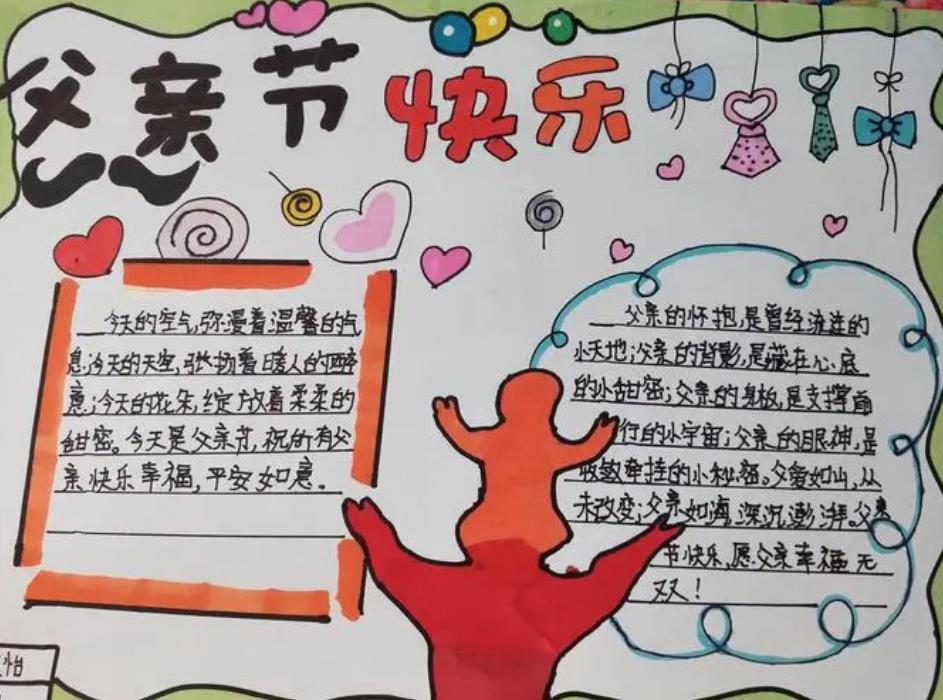 父亲节快乐
今天的空气,弥漫着温馨的气
息;今天的天空,张扬着日爱人的醉
意;今天的花朵,绽放着柔柔的
甜密。今天是父亲节,祝所有父
亲快乐幸福,平安如意。
父亲的怀抱,是曾经流连的
小天地;父亲的背影,是藏在心底
的小甜密;父亲的身板,是支撑前
行的小宇宙;父亲的眼神,是
收敛牵挂的小秘密。父爱如山,从
未改变;父亲如海,深沉澎湃。父亲
节快乐,愿父亲幸福无
双!
怡